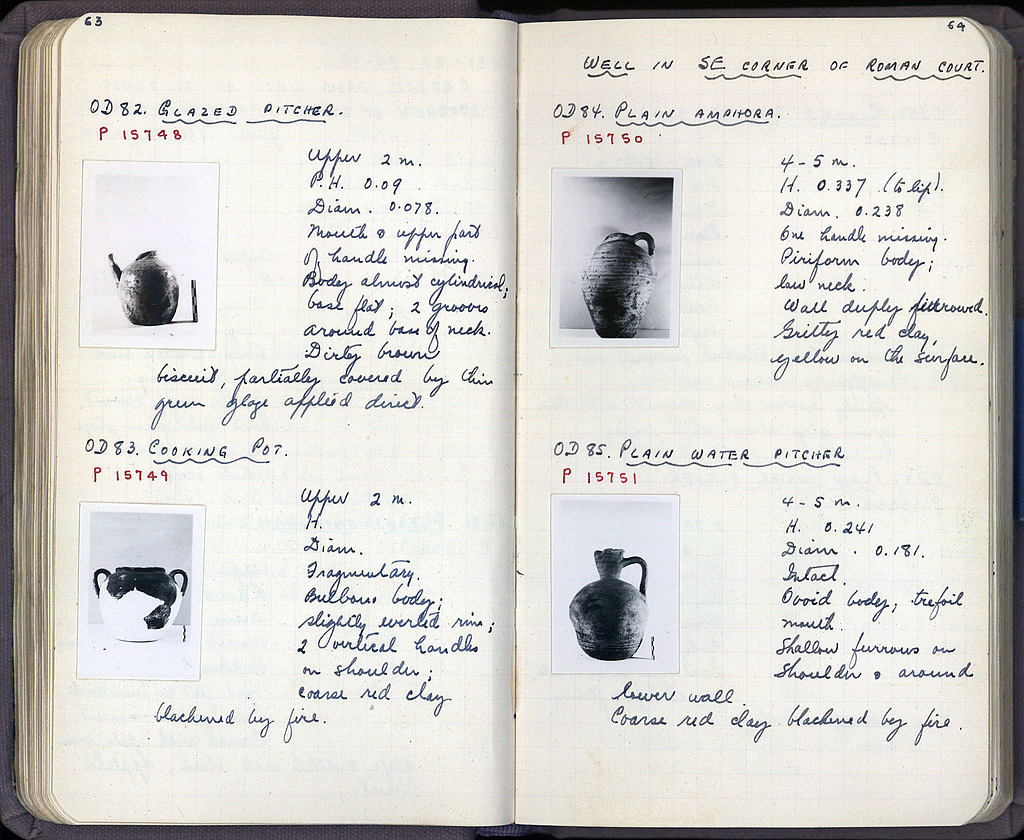 63
OD82. GLAZED PITCHER.
P 15748
Upper 2 m.
P.H. 0.09
Diam. 0.078.
Mouth & upper part
of handle missing.
Body almost cylindrical;
base flat; 2 grooves
around base of neck.
Dirty brown
biscuit, partially covered by thin
green glaze applied direct.
OD83. COOKING POT.
P 15749
Upper 2 m.
H.
Diam.
Fragmentary.
Bulbous body;
slightly everted rim;
2 vertical handles
on shoulder;
coarse red clay
blackened by fire.
64
WELL IN SE CORNER OF ROMAN COURT.
OD84. PLAIN AMPHORA.
P 15750
4-5 m.
H. 0.337 (to lip).
Diam. 0.238
One handle missing.
Piriform body;
low neck.
Wall deeply furrowed.
Gritty red clay,
yellow on the surface.
OD85. PLAIN WATER PITCHER
P 15751
4-5 m.
H. 0.241
Diam. 0.181.
Intact.
Ovoid body; trefoil
mouth.
Shallow furrows on
shoulder & around
lower wall.
Coarse red clay blackened by fire.